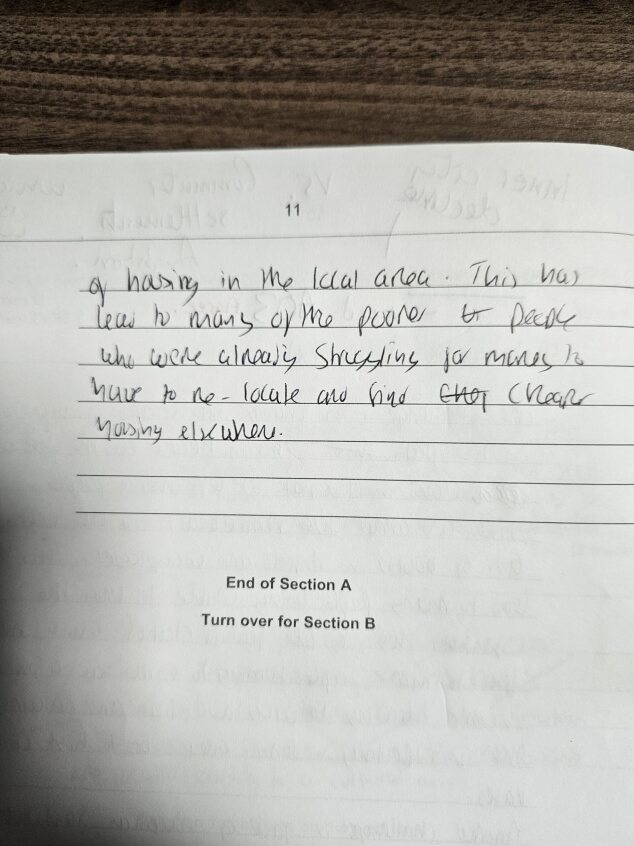 11
of housing in the local area. This has
lead to many of the poorer people
who were already struggling for money to
have to re-locate and find cheaper
housing elsewhere.
End of Section A
Turn over for Section B